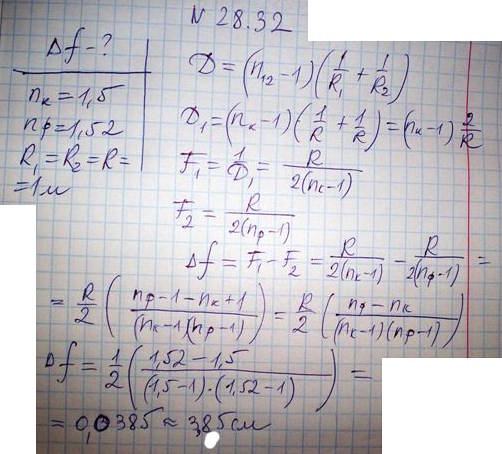 N 28.32
Δf - ?
nк = 1,5
nф = 1,52
R₁ = R₂ = R =
= 1м
D = (n₁₂ - 1)(1/R₁ + 1/R₂)
D₁ = (nк - 1)(1/R + 1/R) = (nк - 1) 2/R
F₁ = 1/D₁ = R/2(nк - 1)
F₂ = R/2(nф - 1)
Δf = F₁ - F₂ = R/2(nк - 1) - R/2(nф - 1) =
= R/2 (nф - 1 - nк + 1/(nк - 1)(nф - 1)) = R/2 (nф - nк/(nк - 1)(nф - 1))
Δf = 1/2 (1,52 - 1,5/(1,5 - 1)·(1,52 - 1)) =
= 0,0385 ≈ 3,85 см